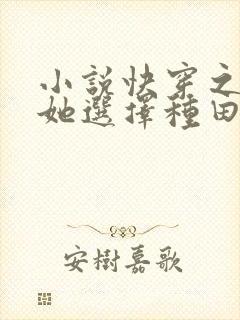 小說快穿之
她選擇種田
安樹嘉歌